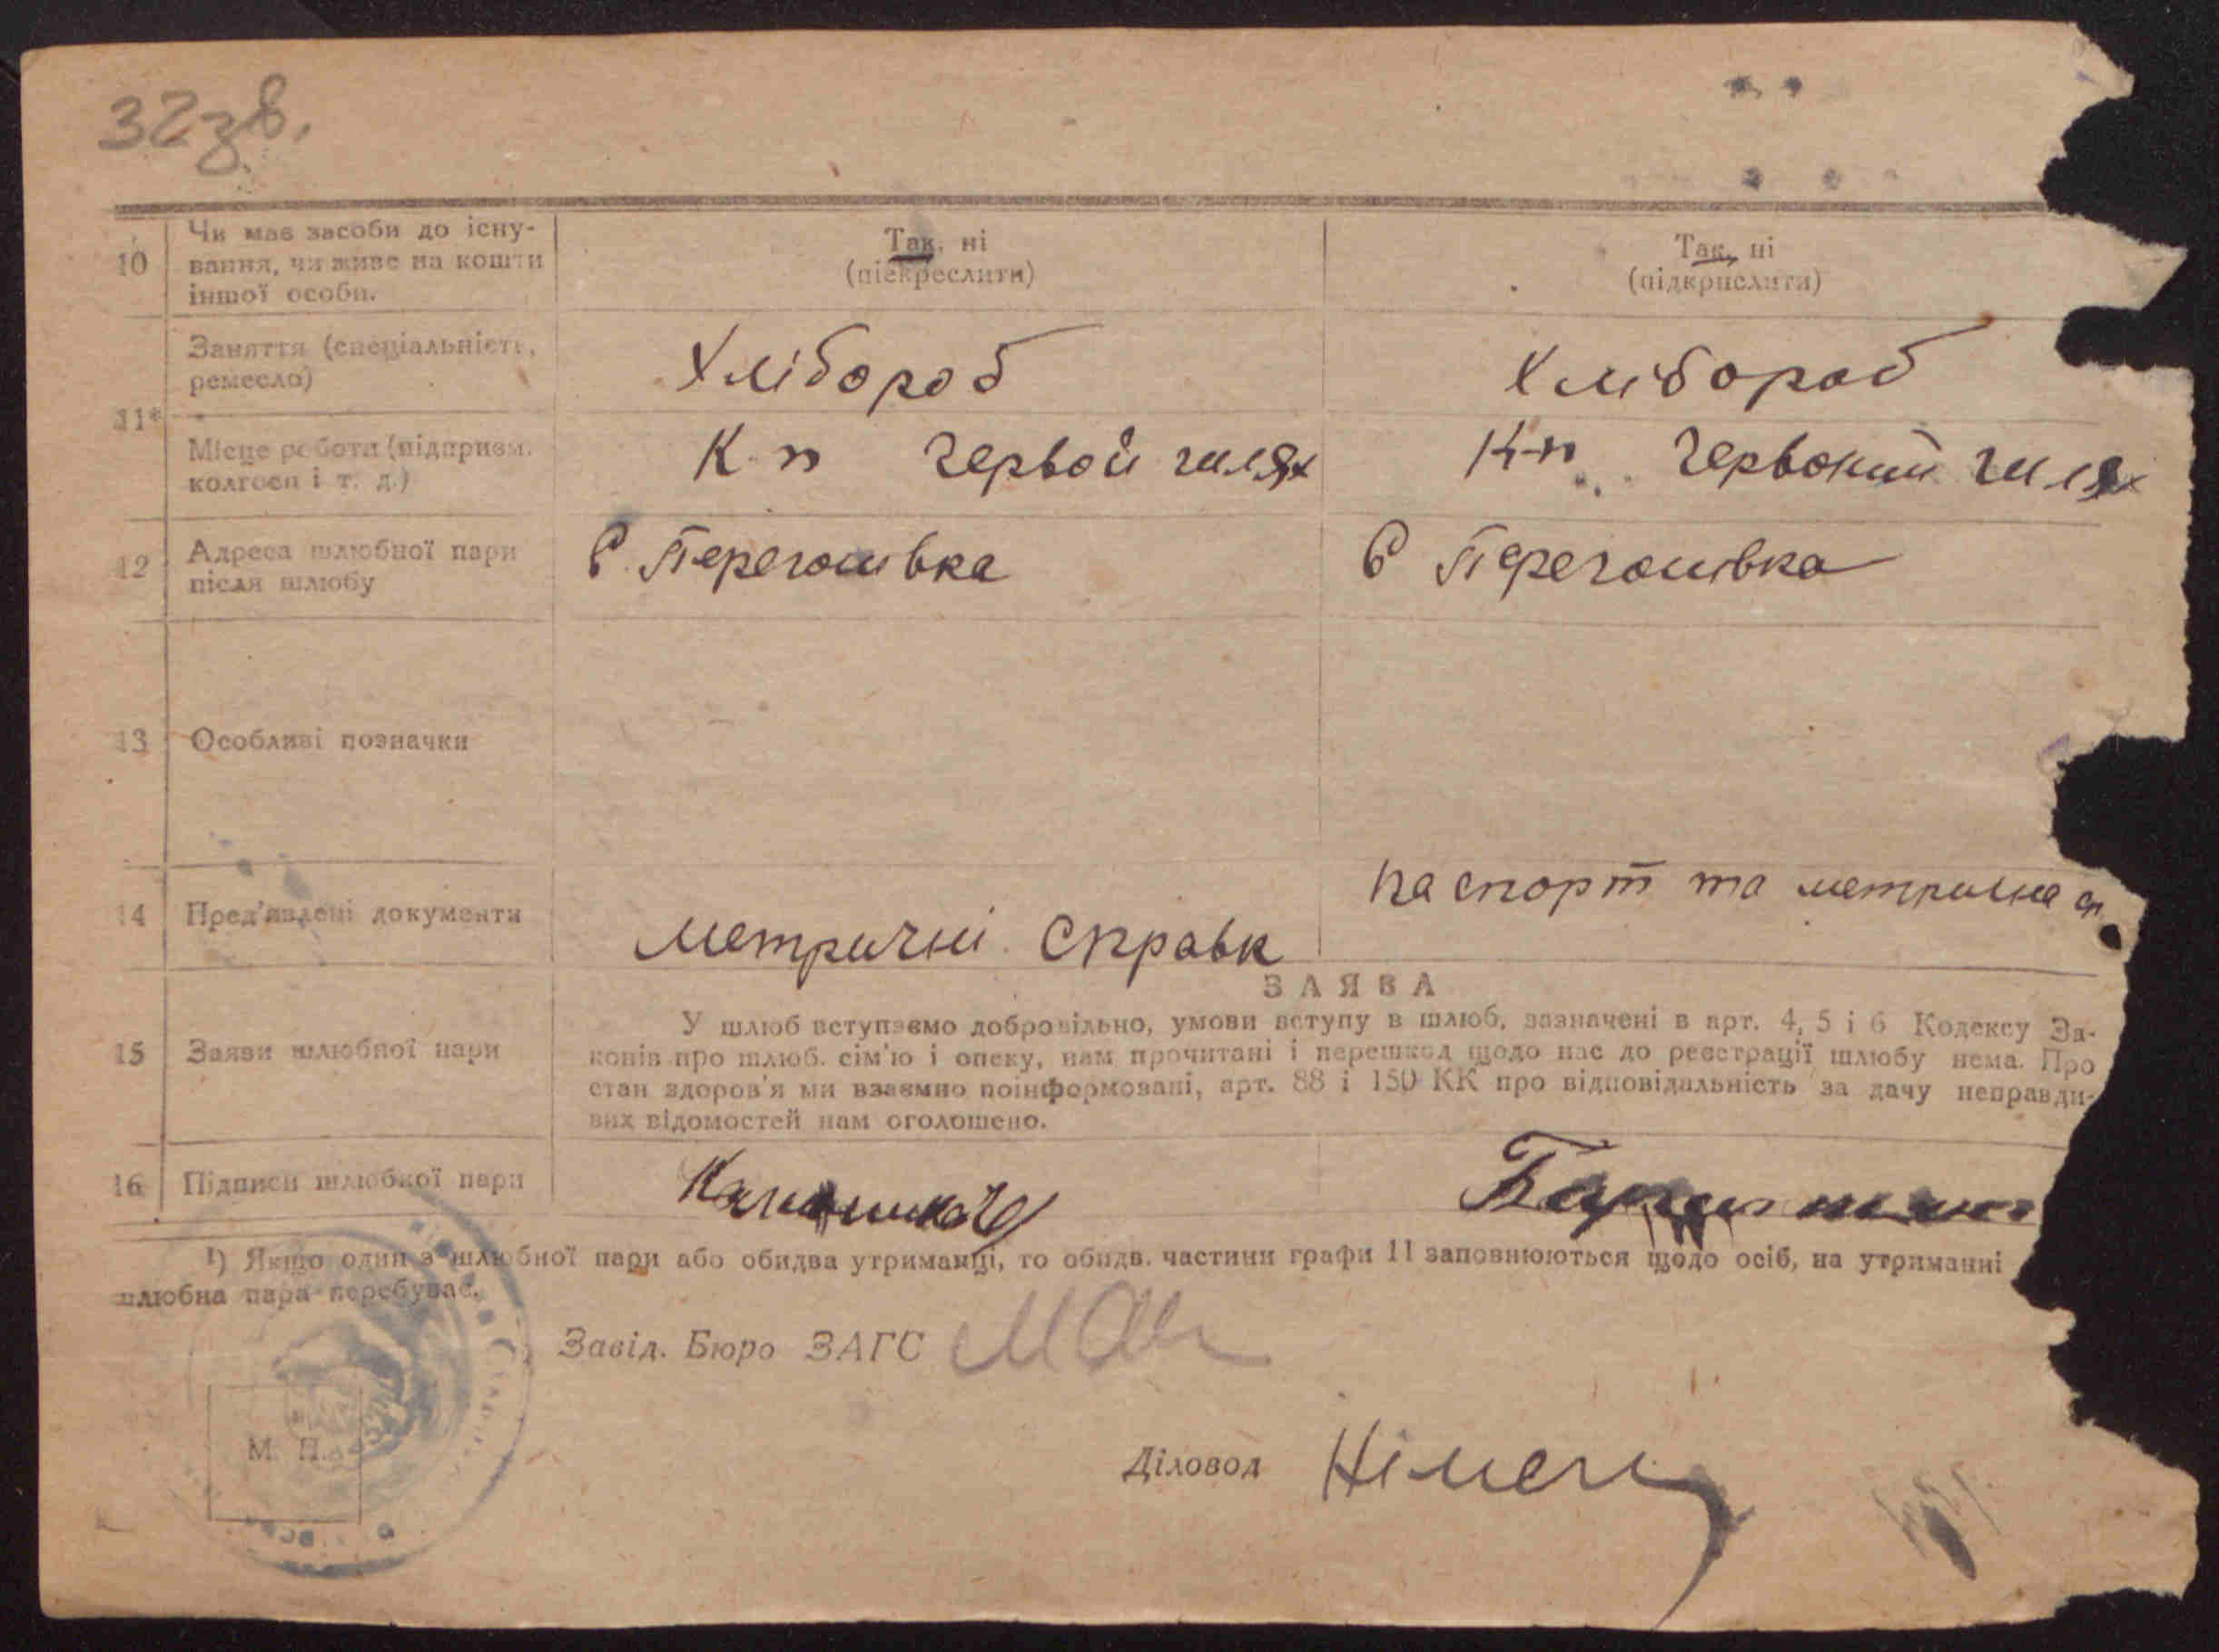 32зв.
10 Чи має засоби до існу-
вання, чи живе на кошти
іншої особи.
Так, ні
(піекреслити)
Так, ні
(підкрислити)
11*
Заняття (спеціальність,
ремесло)
Хлібороб
Хлібороб
Місце роботи (підприєм.
колгосп і т. д.)
К-п Червой шлях
К-п Червоний шлях
12 Адреса шлюбної пари
після шлюбу
С. Перегонівка
С Перегонівка
13 Особливі позначки
14 Пред'явлені документи
метричні справк
паспорт та метрична сп
15 Заяви шлюбної пари
ЗАЯВА
У шлюб вступаємо добровільно, умови вступу в шлюб, зазначені в арт. 4, 5 і 6 Кодексу За-
конів про шлюб. сім'ю і опеку, нам прочитані і перешкод щодо нас до реєстрації шлюбу нема. Про
стан здоров'я ми взаємно поінформовані, арт. 88 і 150 КК про відповідальність за дачу неправди-
вих відомостей нам оголошено.
16 Підписи шлюбної пари
¹) Якщо один з шлюбної пари або обидва утриманці, то обидв. частини графи 11 заповнюються щодо осіб, на утриманні
шлюбна пара перебуває.
Завід. Бюро ЗАГС
М. П.
Діловод Німец